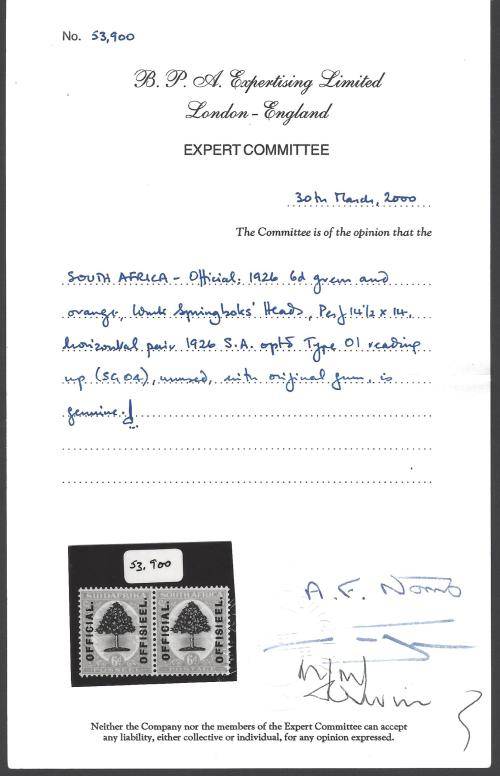 No. 53,900
B. P. A. Expertising Limited
London - England
EXPERT COMMITTEE
30th March, 2000
The Committee is of the opinion that the
SOUTH AFRICA - Official: 1926 6d green and
orange, Wmk Springboks' Heads, Perf 14½ x 14,
horizontal pair 1926 S.A. optd Type O1 reading
up (SG O4), unused, with original gum, is
genuine.
53,900
SUIDAFRIKA SOUTH AFRICA
OFFICIAL. OFFISIEEL. OFFICIAL. OFFISIEEL.
6d 6d
A. F. Norris
Neither the Company nor the members of the Expert Committee can accept
any liability, either collective or individual, for any opinion expressed.